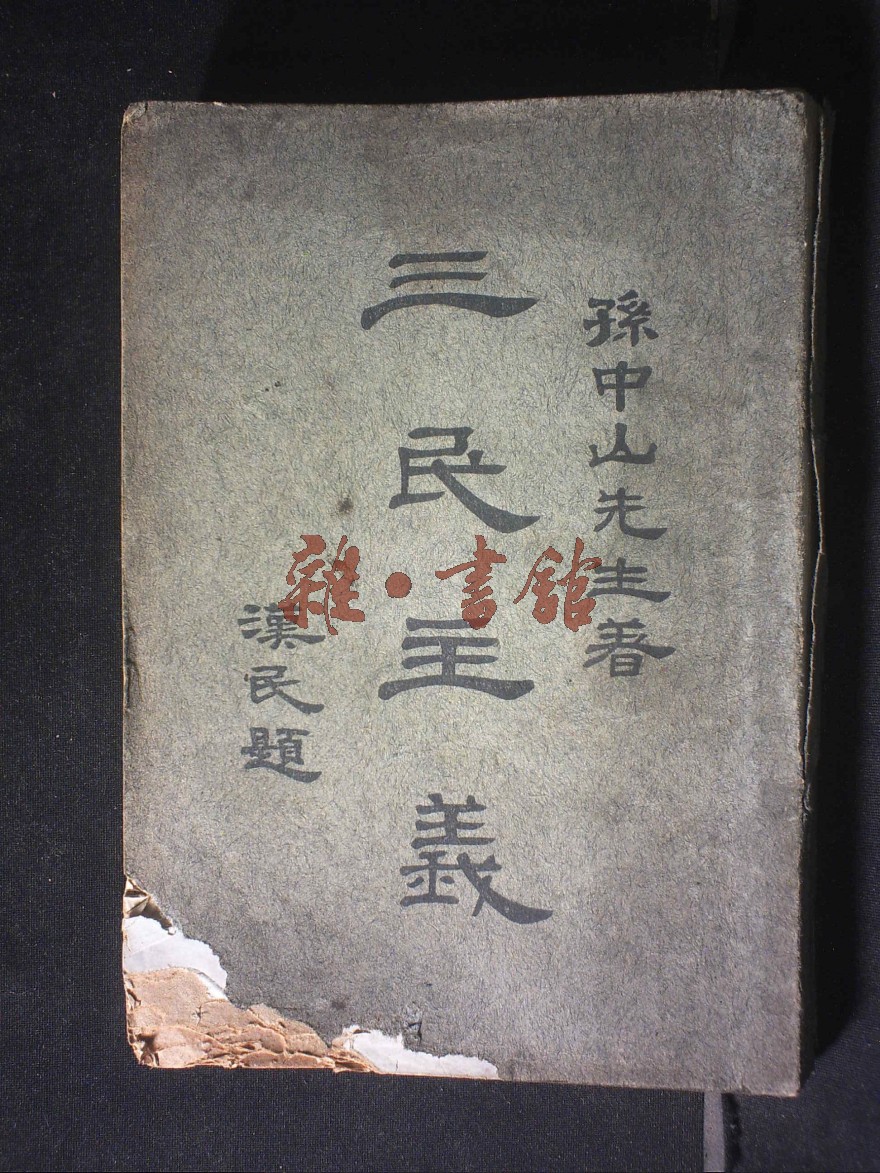 孫中山先生著
三民主義
漢民題
雜·書館